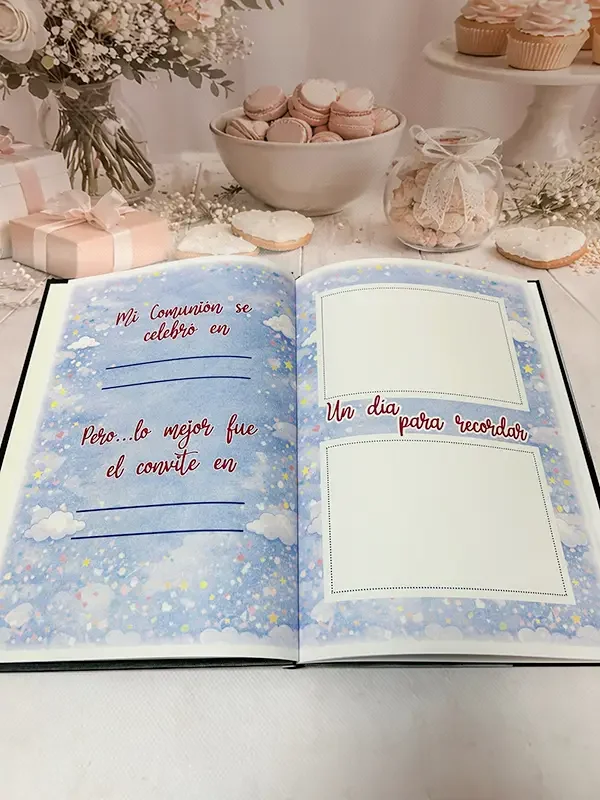 Mi Comunión se
celebró en
Pero...lo mejor fue
el convite en
Un día
para recordar